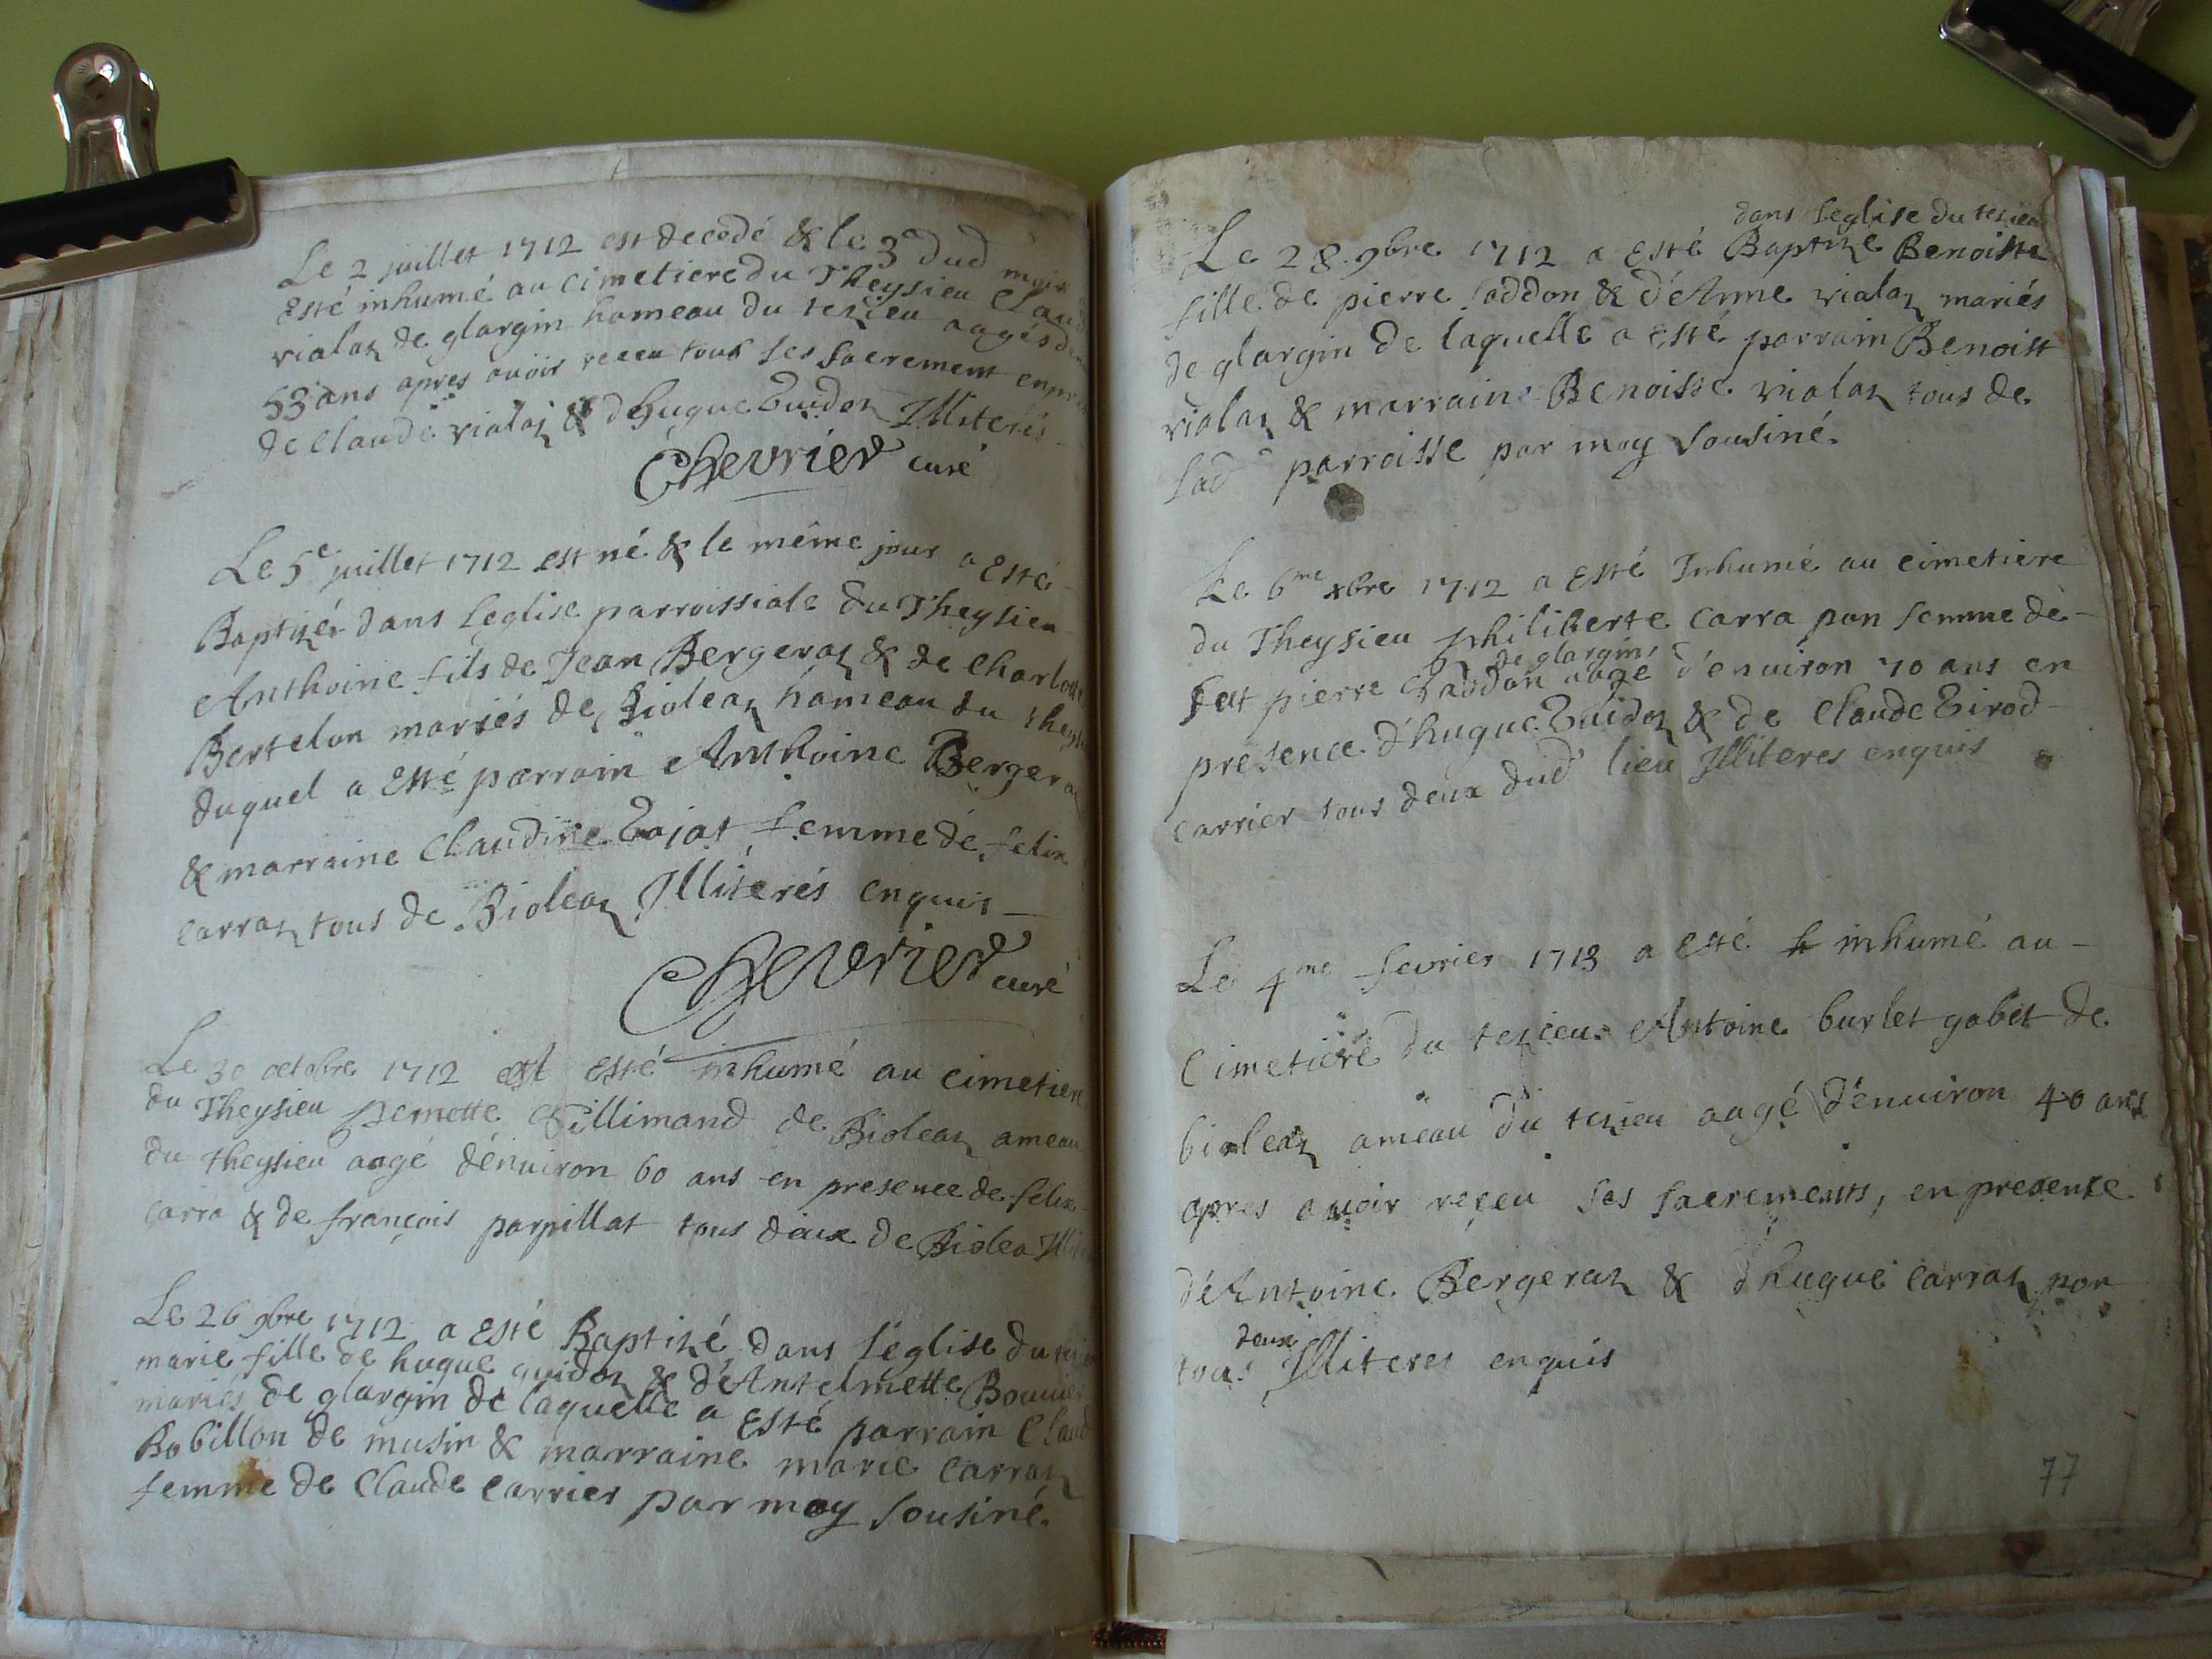 Le 2 juillet 1712 est decedé & le 3 dud mois
Esté inhumé au Cimetiere du Theysieu Clau
vialaz de glargin hameau du tezieu aagés d
53 ans apres avoir receu tous ses sacrement en pre
de Claude vialaz & d'hugue Guidoz Illiterés
Chevrier curé
Le 5e juillet 1712 est né & le même jour a Esté
Baptizér dans leglise parroissiale du Theysieu
Anthoine fils de Jean Bergeraz & de Charlotte
Bertelon mariés de Bioleaz hameau du theys
duquel a Esté parrain Anthoine Bergera
& marraine Claudine Gojat femme dé felix
Carraz tous de Bioleaz Illiterés enquis
Chevrier curé
Le 30 octobre 1712 Esté inhumé au cimetiere
du Theysieu pernette Sillimand de Bioleaz ameau
du theysieu aagé dénuiron 60 ans en presence de felix
Carra & de françois parpillat tous deux de Biolea
Le 26 9bre 1712 a Esté Baptizé dans l'église du
marie fille de hugue guidoz & d'Antelmette Bouvier
mariés de glargin de laquelle a Esté parrain Claud
Bobillon de musin & marraine marie Carraz
femme de Claude Carrier par moy sousiné.
dans leglise du tezieu
Le 28. 9bre 1712 a Esté Baptize Benoiste
fille de pierre saddon & d'éAnne vialaz mariés
de glargin de laquelle a Esté parrain Benoist
vialaz & marraine Benoiste vialaz tous de
lad parroisse par moy sousiné.
Le 6me xbre 1712 a Esté Inhumé au cimetiere
du Theysieu philiberte Carra pon femme de
de glargin
feut pierre Saddon aage d'enuiron 70 ans en
presence d'hugue Guidoz & de Claude Girod
carrier tous deux dud lieu Illiteres enquis
Le 4me fevrier 1713 a esté inhumé au
Cimetiere du tezieu Antoine burlet gobet de
bioleaz ameau du tezieu aagé dénuiron 40 ans
apres avoir reçeu ses sacrements, en presence
d'éAntoine Bergeraz & d'hugue Carraz pon
deux
tous Illiteres enquis
77